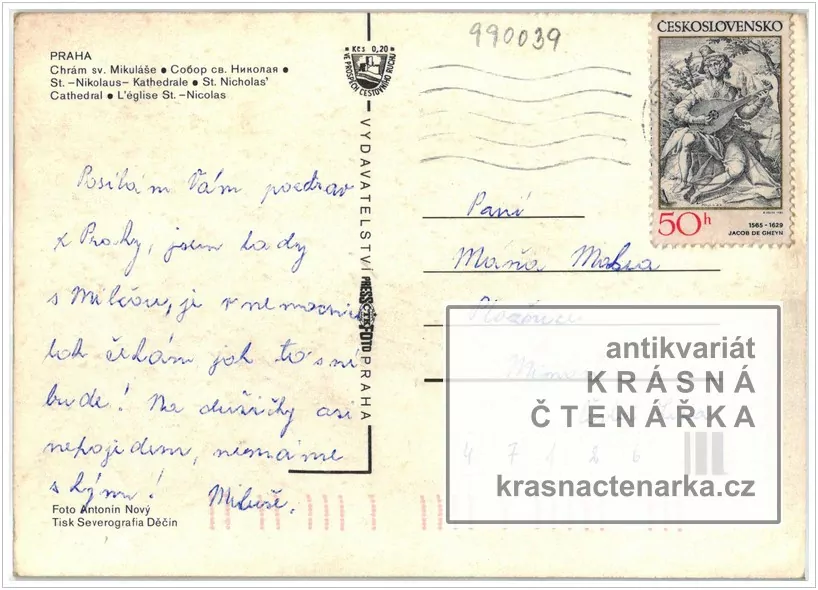 990039
ČESKOSLOVENSKO
50h
1565-1629
JACOB DE GHEYN
PRAHA
Chrám sv. Mikuláše ● Собор св. Николая ●
St. -Nikolaus- Kathedrale ● St. Nicholas'
Cathedral ● L'église St. -Nicolas
Kčs 0,20
VE PROSPĚCH CESTOVNÍHO RUCHU
VYDAVATELSTVÍ PRESSFOTO PRAHA
Posílám Vám pozdrav
z Prahy, jsem tady
s je v nemocnici
tak čekám jak to s ní
bude! Na dušičky asi
nepojedem, nemáme
s kým! Miluše.
Foto Antonín Nový
Tisk Severografia Děčín
Paní
Máňa
4 7 1 2 6
antikvariát
KRÁSNÁ
ČTENÁŘKA
krasnactenarka.cz